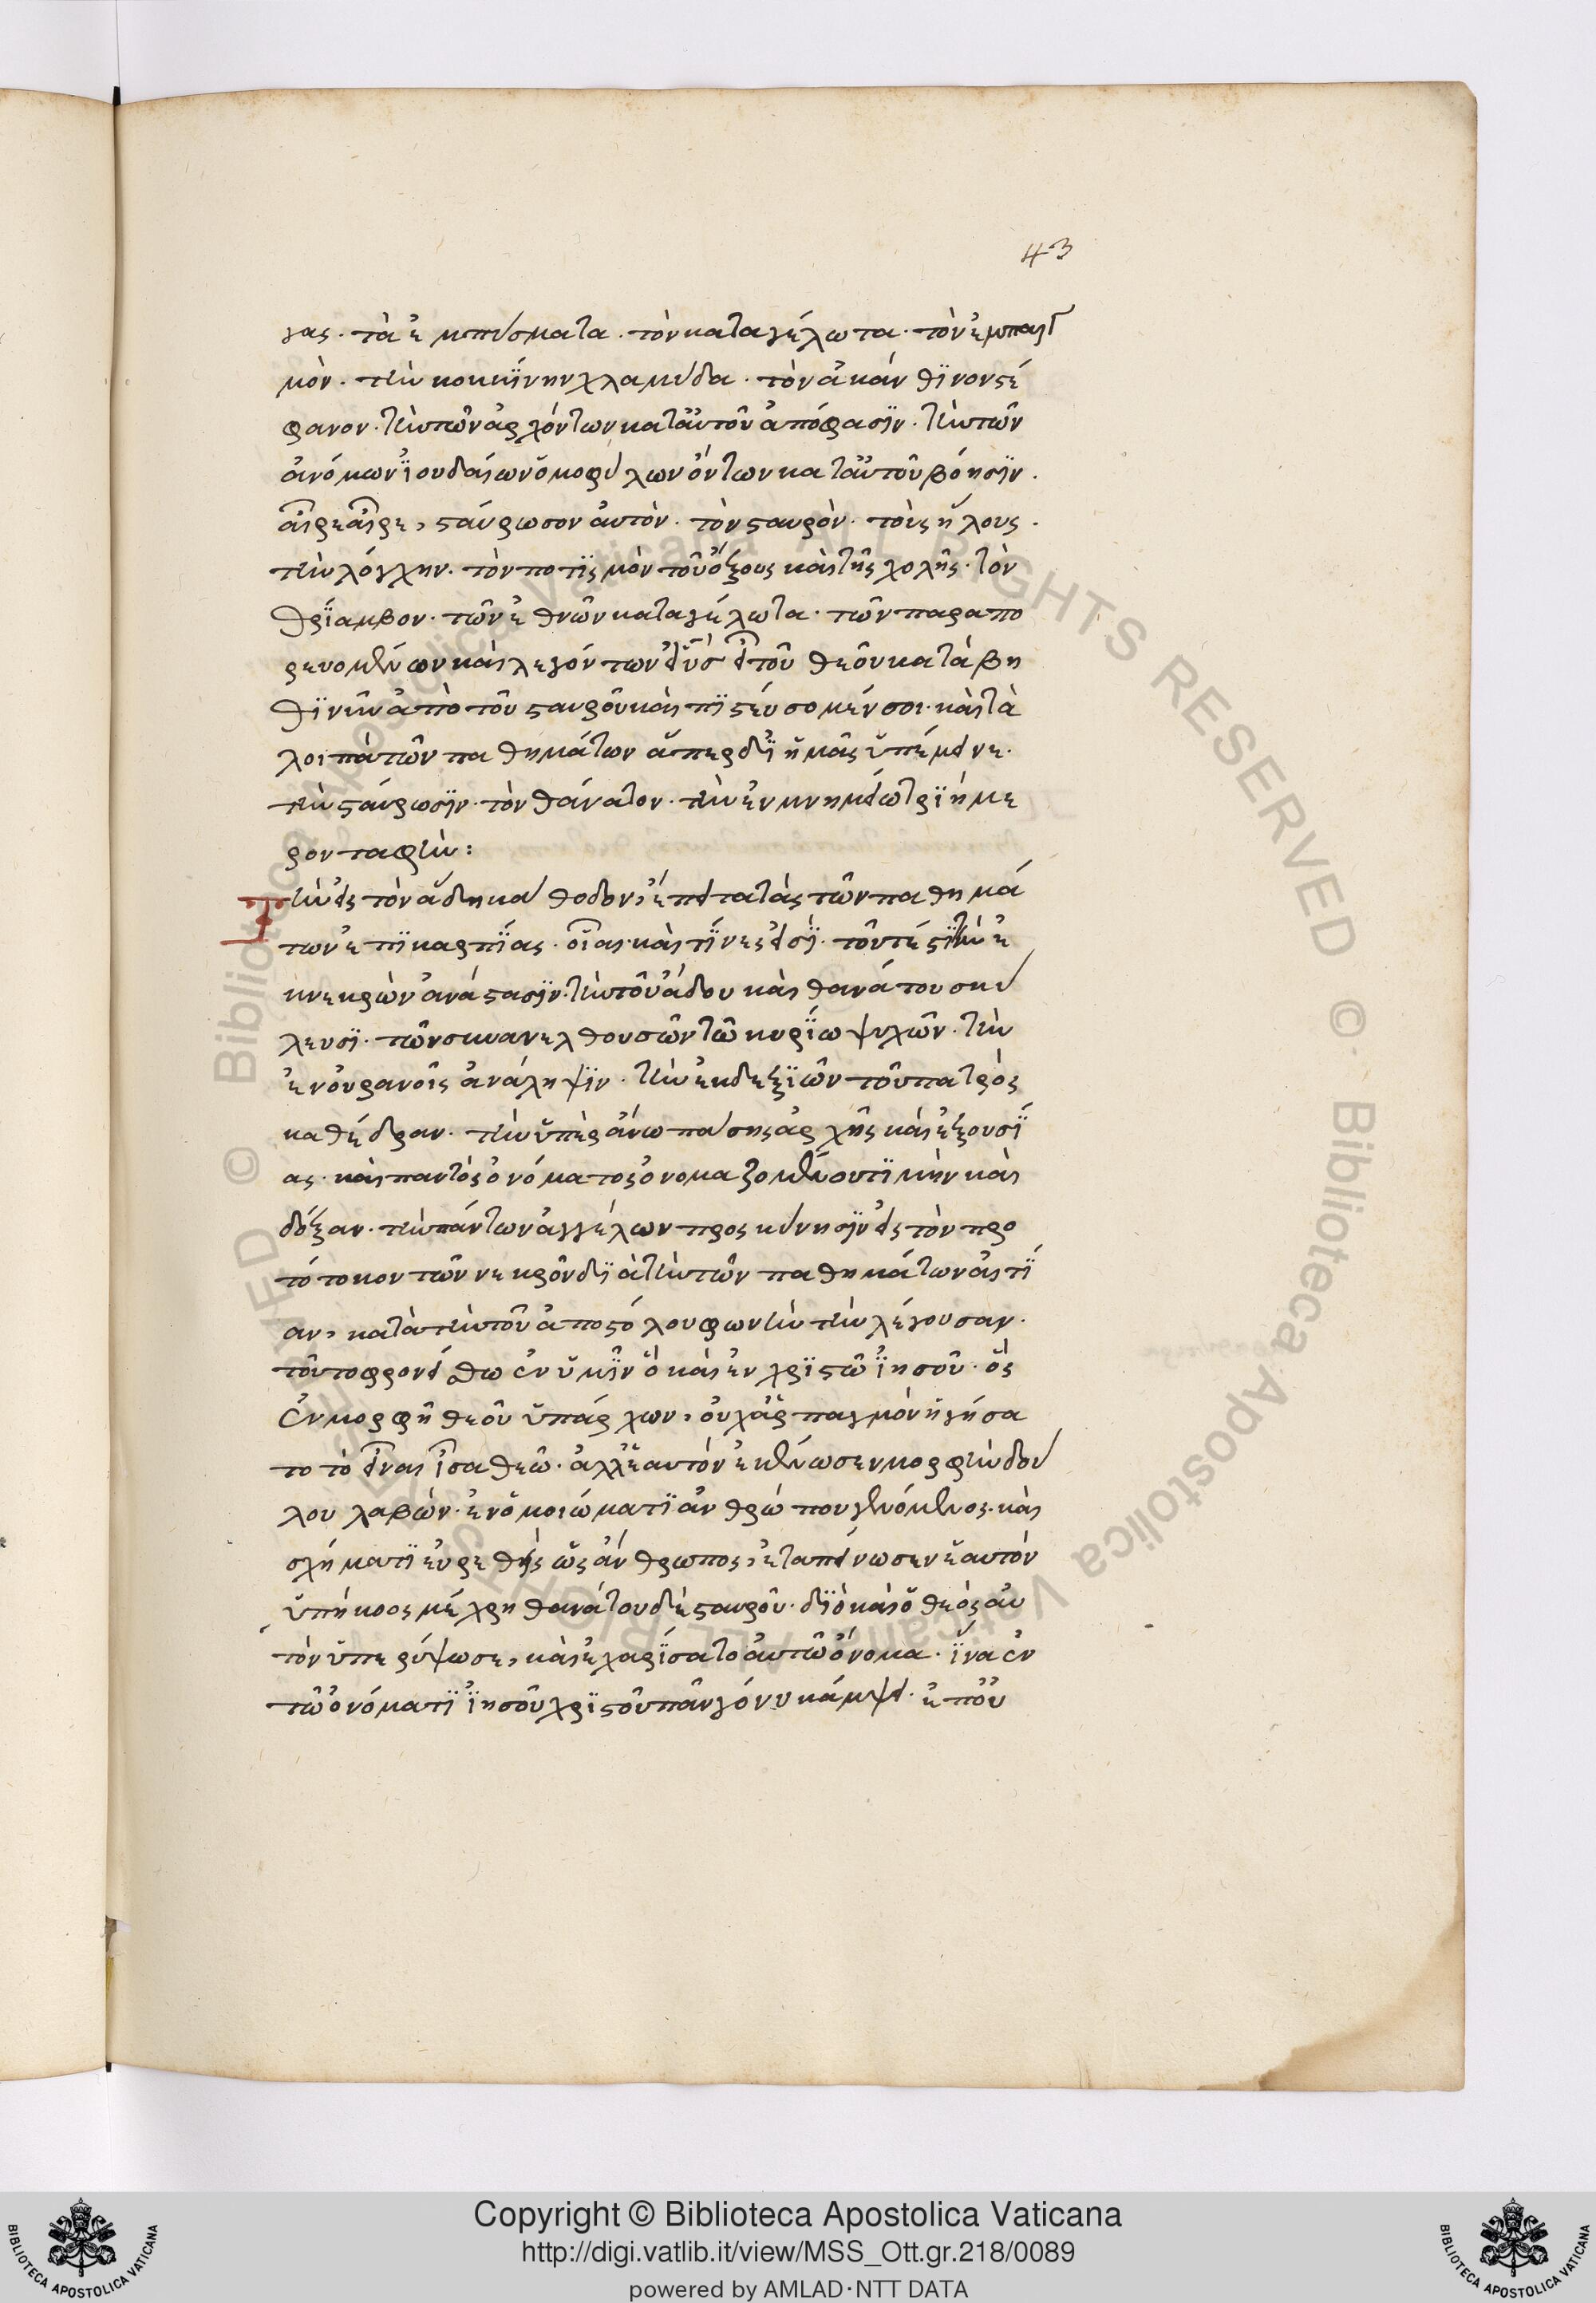 43
γας· τὰ ἐμπτύσματα· τὸν καταγέλωτα· τὸν ἐμπαιγ
μόν· τὴν κοκκίνην χλαμύδα· τὸν ἀκάνθινον στέ
φανον· τὴν τῶν ἀρχόντων κατ' αὐτοῦ ἀπόφασιν· τὴν τῶν
ἀνόμων ἰουδαίων ὁμοφύλων ὄντων κατ' αὐτοῦ βόησιν·
αἶρε αἶρε, σταύρωσον αὐτόν· τὸν σταυρόν· τοὺς ἥλους·
τὴν λόγχην· τὸν ποτισμὸν τοῦ ὄξους καὶ τῆς χολῆς· τὸν
θρίαμβον· τῶν ἐθνῶν καταγέλωτα· τῶν παραπο
ρευομένων καὶ λεγόντων εἰ υἱὸς εἶ τοῦ θεοῦ κατάβη
θι νῦν ἀπὸ τοῦ σταυροῦ καὶ πιστεύσομέν σοι· καὶ τὰ
λοιπὰ τῶν παθημάτων ἅπερ δι' ἡμᾶς ὑπέμεινε·
τὴν σταύρωσιν· τὸν θάνατον· τὴν ἐν μνημείω τριήμε
ρον ταφήν:
Τὴν εἰς τὸν ἅδη κάθοδον, ἔπειτα τὰς τῶν παθημά
των ἐπικαρπίας· οἷαι καὶ τίνες εἰσί· τουτέστι τὴν ἐ
κ νεκρῶν ἀνάστασιν· τὴν τοῦ ἅδου καὶ θανάτου σκύ
λευσι· τῶν συνανελθουσῶν τῶ κυρίω ψυχῶν· τὴν
ἐν οὐρανοῖς ἀνάληψιν· τὴν ἐκ δεξιῶν τοῦ πατρὸς
καθέδραν· τὴν ὑπεράνω πάσης ἀρχῆς καὶ ἐξουσί
ας· καὶ παντὸς ὀνόματος ὀνομαζομένου τιμὴν καὶ
δόξαν· τὴν πάντων ἀγγέλων προσκύνησιν εἰς τὸν πρω
τότοκον τῶν νεκρῶν διὰ τὴν τῶν παθημάτων αἰτί
αν, κατὰ τὴν τοῦ ἀποστόλου φωνὴν τὴν λέγουσαν·
τοῦτο φρονείσθω ἐν ὑμῖν ὃ καὶ ἐν χριστῶ ἰησοῦ· ὃς
ἐν μορφῇ θεοῦ ὑπάρχων, οὐχ ἁρπαγμὸν ἡγήσα
το τὸ εἶναι ἶσα θεῶ· ἀλλ' ἑαυτὸν ἐκένωσεν μορφὴν δού
λου λαβών· ἐν ὁμοιώματι ἀνθρώπου γενόμενος· καὶ
σχήματι εὑρεθεὶς ὡς ἄνθρωπος, ἐταπείνωσεν ἑαυτὸν
ὑπήκοος μέχρη θανάτου δὲ σταυροῦ· διὸ καὶ ὁ θεὸς αὐ
τὸν ὑπερύψωσε, καὶ ἐχαρίσατο αὐτῶ ὄνομα· ἵνα ἐν
τῶ ὀνόματι ἰησοῦ χριστοῦ πᾶν γόνυ κάμψει· ἐπου
Copyright © Biblioteca Apostolica Vaticana
http://digi.vatlib.it/view/MSS_Ott.gr.218/0089
powered by AMLAD·NTT DATA